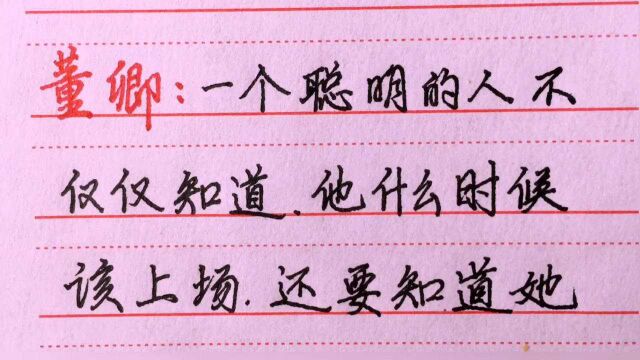 董卿:一个聪明的人不
仅仅知道.他什么时候
该上场.还要知道她